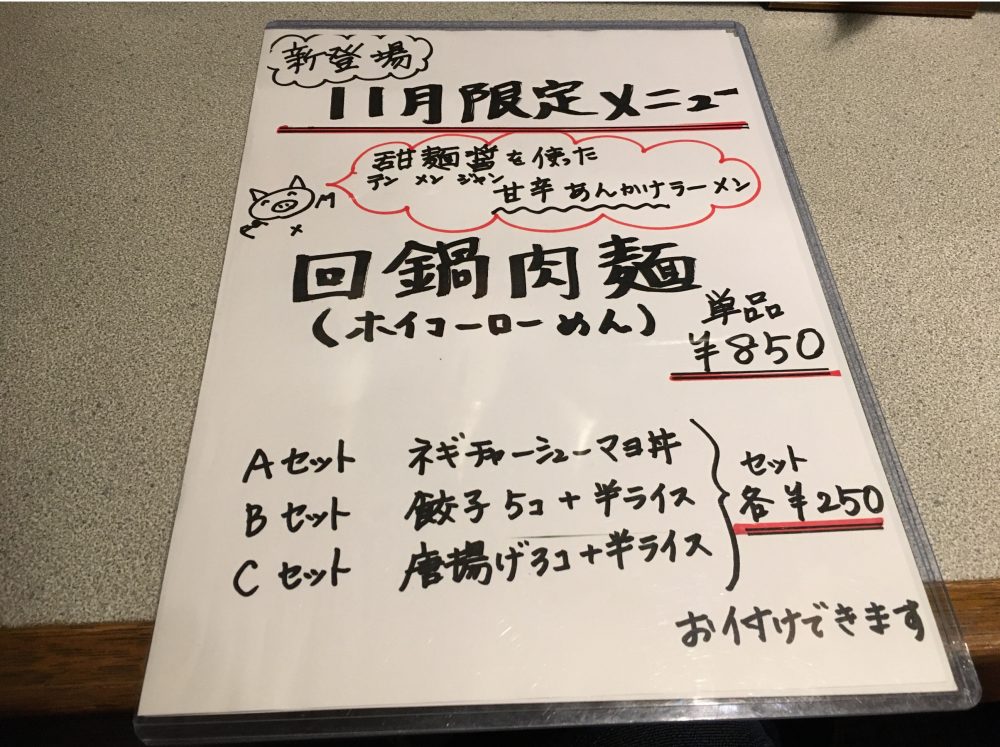 新登場
11月限定メニュー
甜麺醤を使った
テン メン ジャン
甘辛あんかけラーメン
回鍋肉麺
(ホイコーローめん)
単品
¥850
Aセット ネギチャーシューマヨ丼
Bセット 餃子5コ+半ライス
Cセット 唐揚げ3コ+半ライス
セット
各¥250
お付けできます